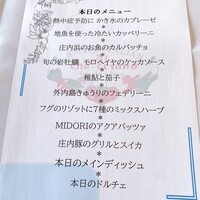 本日のメニュー
熱中症予防に かき氷のカプレーゼ
*
地魚を使った冷たいカッペリーニ
*
庄内浜のお魚のカルパッチョ
*
旬の岩牡蠣 モロヘイヤのケッカソース
*
稚鮎と茄子
*
外内島きゅうりのフェデリーニ
*
フグのリゾットに7種のミックスハーブ
*
MIDORIのアクアパッツァ
*
庄内豚のグリルとスイカ
*
本日のメインディッシュ
*
本日のドルチェ